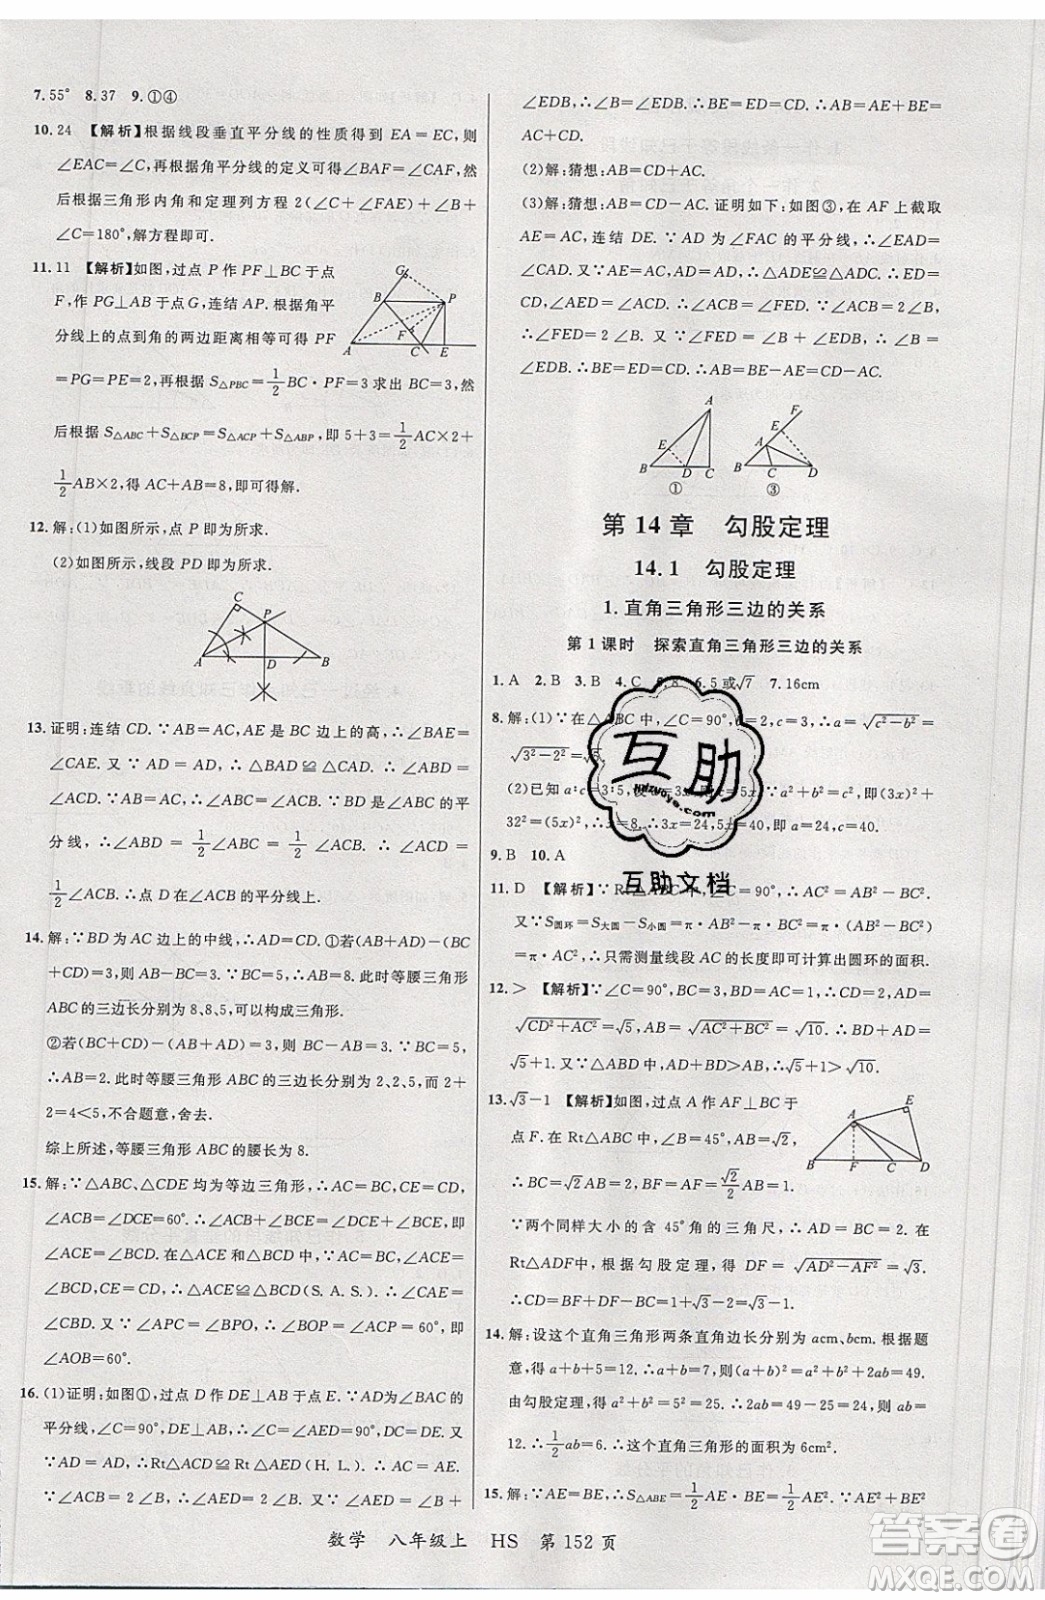 7.55° 8.37 9.①④
10.24 【解析】根据线段垂直平分线的性质得到 EA=EC,则
∠EAC=∠C,再根据角平分线的定义可得∠BAF=∠CAF,然
后根据三角形内角和定理列方程 2(∠C+∠FAE)+∠B+
∠C=180°,解方程即可.
11.11 【解析】如图,过点 P 作 PF⊥BC 于点
F,作 PG⊥AB 于点 G,连结 AP. 根据角平
分线上的点到角的两边距离相等可得 PF
=PG=PE=2,再根据 S△PBC=1/2BC·PF=3 求出 BC=3,然
后根据 S△ABC+S△BCP=S△ACP+S△ABP,即 5+3=1/2AC×2+
1/2AB×2,得 AC+AB=8,即可得解.
G
B
P
F
A
C
E
12.解:(1)如图所示,点 P 即为所求.
(2)如图所示,线段 PD 即为所求.
C
P
A
D
B
13.证明:连结 CD.∵AC=AD,AE 是 BC 边上的高,∴∠BAE=
∠CAE. 又∵AD=AD,∴△BAD≌△CAD. ∴∠ABD=
∠ACD. ∵∠BAC=∠ABC=∠ACB,BD 是∠ABC 的平
分线,∴∠ABD=1/2∠ABC=1/2∠ACB. ∴∠ACD=
1/2∠ACB. ∴点 D 在∠ACB 的平分线上.
14.解:∵BD 为 AC 边上的中线,∴AD=CD.①若(AB+AD)-(BC
+CD)=3,则 AB-BC=3.∵BC=5,∴AB=8. 此时等腰三角形
ABC 的三边长分别为 8、8、5,可以构成三角形.
②若(BC+CD)-(AB+AD)=3,则 BC-AB=3.∵BC=5,
∴AB=2. 此时等腰三角形 ABC 的三边长分别为 2、2、5,而 2+
2=4<5,不合题意,舍去.
综上所述,等腰三角形 ABC 的腰长为 8.
15.解:∵△ABC、△CDE 均为等边三角形,∴AC=BC,CE=CD,
∠ACB=∠DCE=60°. ∴∠ACB+∠BCE=∠DCE+∠BCE,即
∠ACE=∠BCD. 在△ACE 和△BCD 中,∵AC=BC,∠ACE=
∠BCD,CE=CD,∴△ACE≌△BCD(S.A.S.). ∴∠CAE=
∠CBD. 又∵∠APC=∠BPO,∴∠ACB=∠AOB=60°,即
∠AOB=60°.
16.(1)证明:如图①,过点 D 作 DE⊥AB 于点 E.∵AD 为∠BAC 的
平分线,∠C=90°,DE⊥AB,∴DE=DC,∠C=∠AED=90°.
又∵AD=AD,∴Rt△ACD≌Rt△AED(H.L.).∴AC=AE,
∠C=∠AED. ∵∠ACB=2∠B,∴∠AED=2∠B. 又∵∠AED=∠B+
∠EDB,∴∠B=∠EDB,∴BE=DE=DC,∴AB=BE+AE=
AC+CD.
(2)解:猜想:AB=AC+CD.
(3)解:猜想:AB=CD-AC. 证明如下:如图③,在 AF 上截取
AE=AC,连结 DE. ∵AD 为∠FAC 的平分线,∴∠EAD=
∠CAD. 又∵AE=AC,AD=AD,∴△ADE≌△ADC. ∴DE=
CD,∠AED=∠ACD. ∴∠ACB=∠FED. ∵∠ACB=2∠B,
∴∠FED=2∠B. 又∵∠FED=∠B+∠EDB,∴∠EDB=
∠B. ∴DE=BE. ∴BE=CD. ∴AB=BE-AE=CD-AC.
A
E
B
D
C
①
F
E
A
B
C
D
③
第 14 章 勾股定理
14.1 勾股定理
1.直角三角形三边的关系
第 1 课时 探索直角三角形三边的关系
1.A 2.B 3.B 4.C 5.8 6.5或√7 7.16cm
8.解:(1)∵在△ABC 中,∠C=90°,b=2,c=3,∴a=√(c²-b²)=
√(3²-2²)=√5.
(2)已知 a:c=3:5,设 a=3x,c=5x.∵a²+b²=c²,即(3x)²+
32²=(5x)²,解得 x=8,∴3x=24,5x=40,即 a=24,c=40.
9.B 10.A
11.D 【解析】∵Rt△ABC 中,∠C=90°,∴AC²=AB²-BC².
又∵S圆环=S大圆-S小圆=π·AB²-π·BC²=π(AB²-BC²)=
π·AC²,∴只需测量线段 AC 的长度即可计算出圆环的面积.
12.> 【解析】∵∠C=90°,BC=3,CD=AC=1,∴BD=2,AD=
√(CD²+AC²)=√5,AB=√(AC²+BC²)=√10.∴BD+AD=2+
√5. 又∵△ABD 中,AD+BD>AB,∴√5+2>√10.
13.√3-1 【解析】如图,过点 A 作 AF⊥BC 于
点 F. 在 Rt△ABC 中,∠B=45°,AB=AC,
∴BC=√2AB=2,BF=AF=√2/2AB=1.
∵两个同样大小的含 45°角的三角尺,∴AD=BC=2. 在
Rt△ADF 中,根据勾股定理,得 DF=√(AD²-AF²)=√3.
∴CD=BF+DF-BC=1+√3-2=√3-1.
A
E
B
F
C
D
14.解:设这个直角三角形两条直角边长分别为 acm、bcm. 根据题
意,得 a+b+5=12.∴a+b=7.∴a²+b²+2ab=49.
由勾股定理,得 a²+b²=5²=25.∴2ab=49-25=24,即 ab=
12.∴1/2ab=6.∴这个直角三角形的面积为 6cm².
15.解:∵AE=BE,∴S△ABE=1/2AE·BE=1/2AE². 又∵AE²+
数学 八年级上 HS 第 152 页
互助
互助文档
答案圈
MXQE.COM